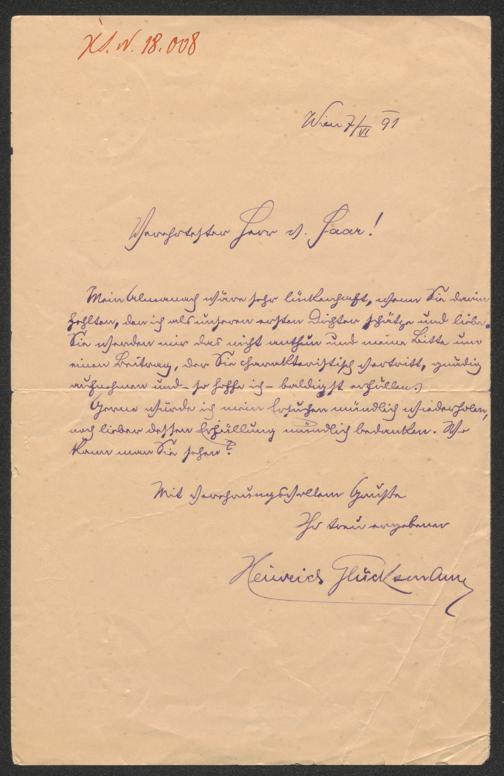 I.N. 18.008
Wien 7/VI 91
Verehrtester Herr v. Saar!
Mein Almanach wäre sehr lückenhaft, wenn Sie darin
fehlten, den ich als unseren ersten Dichter schätze und liebe.
Sie werden mir das nicht anthun und meine Bitte um
einen Beitrag, der Sie charakteristisch vertritt, gnädig
aufnehmen und – so hoffe ich – baldigst erfüllen.
Gerne würde ich mein Ersuchen mündlich wiederholen,
noch lieber dessen Erfüllung mündlich bedanken. Wo
kann man Sie sehen?
Mit verehrungsvollem Gruße
Ihr treu ergebener
Heinrich Glücksmann